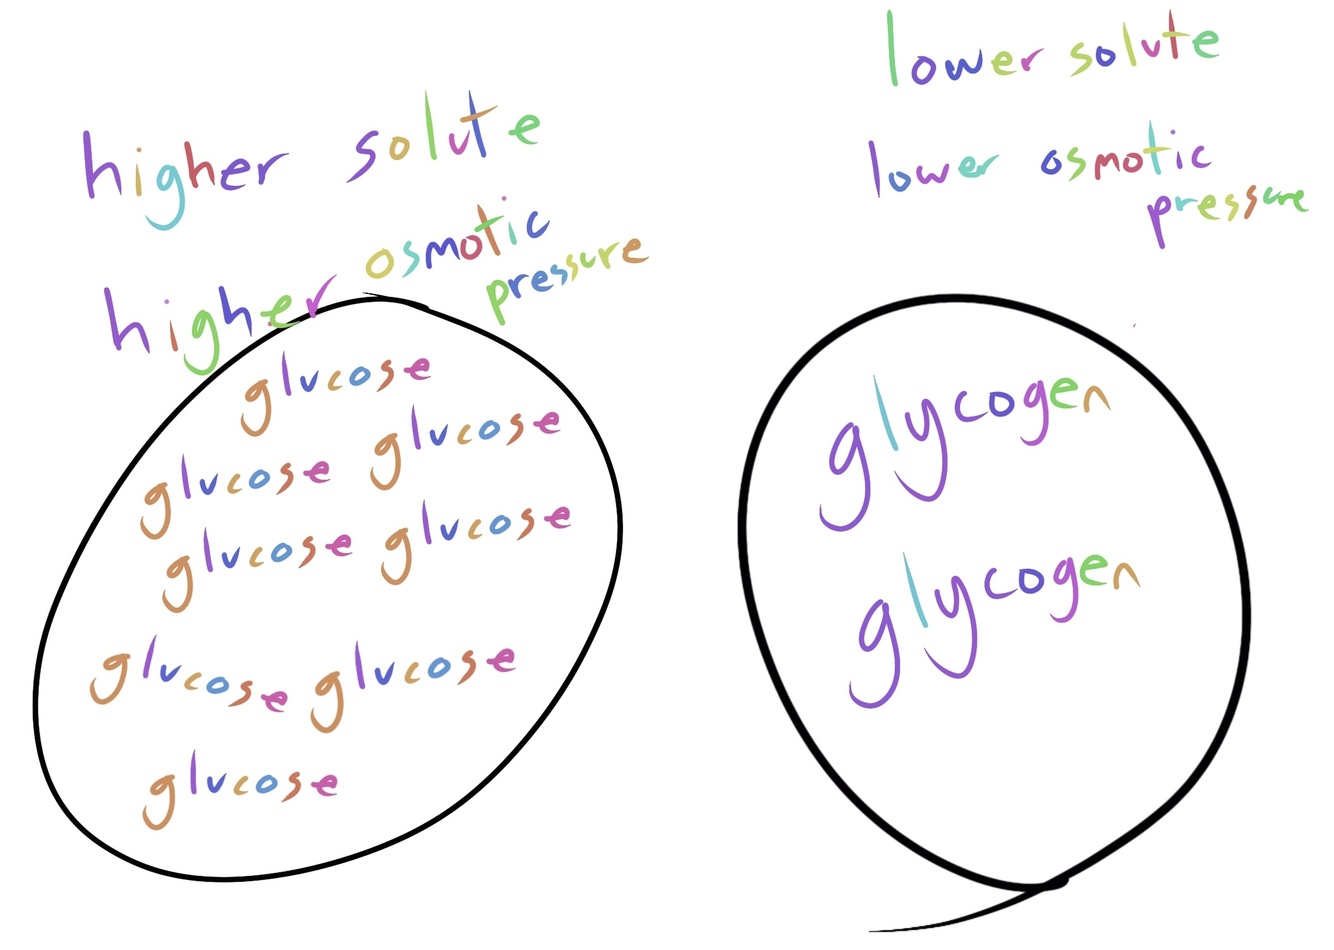 higher solute
higher osmotic
pressure
glucose
glucose glucose
glucose glucose
glucose glucose
glucose
lower solute
lower osmotic
pressure
glycogen
glycogen